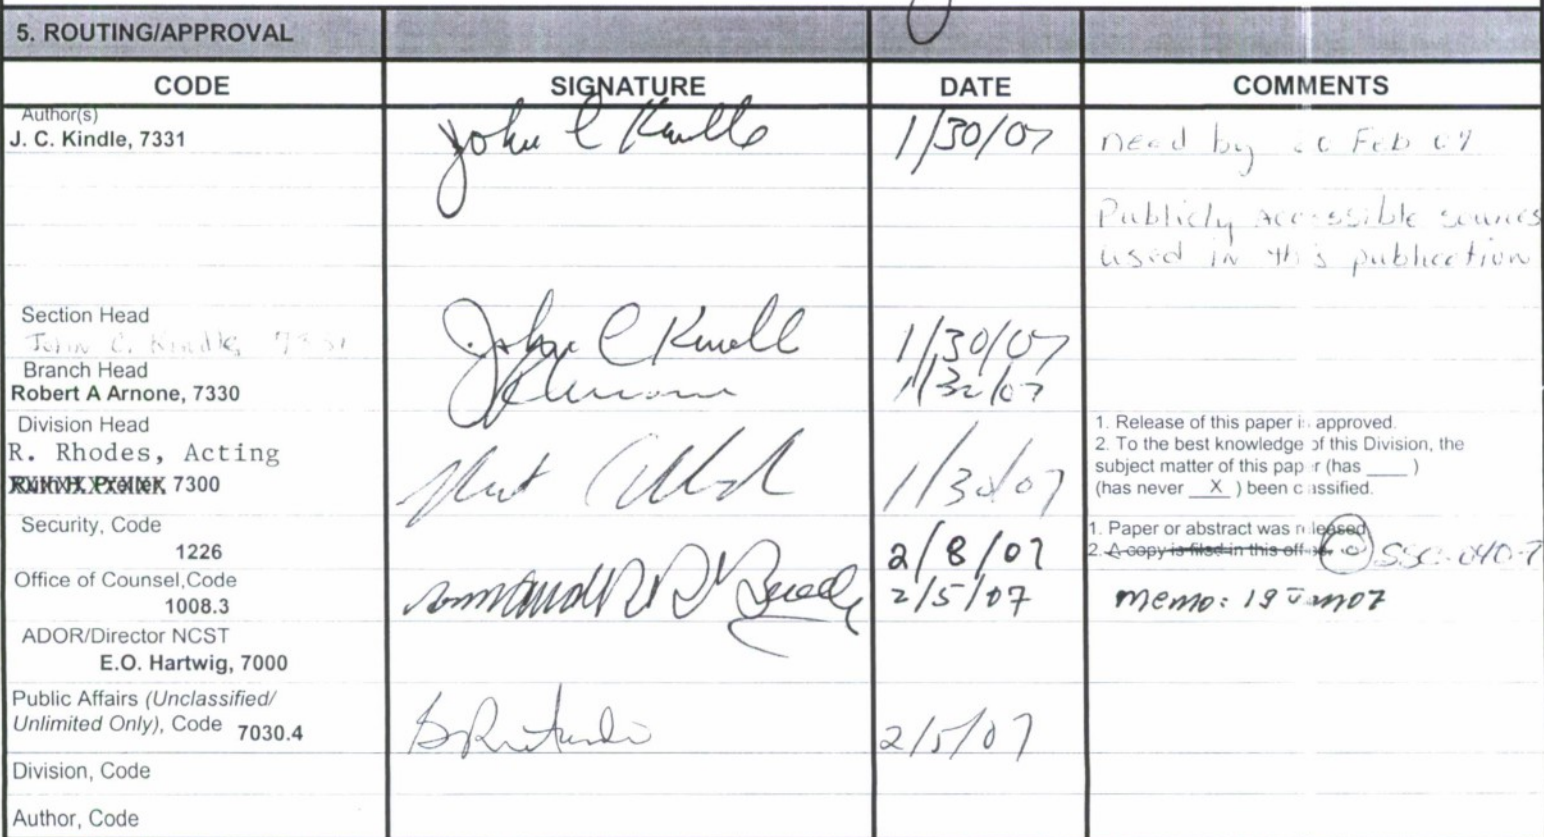 5. ROUTING/APPROVAL
CODE SIGNATURE DATE COMMENTS
Author(s)
J. C. Kindle, 7331 John C Kindle 1/30/07 need by 20 Feb 07
Publicly accessible sources
used in this publication
Section Head
John C. Kindle, 7331 John C Kindle 1/30/07
Branch Head
Robert A Arnone, 7330 1/30/07
Division Head
R. Rhodes, Acting 1/30/07
7300
1. Release of this paper is approved.
2. To the best knowledge of this Division, the
subject matter of this paper (has ____ )
(has never X ) been classified.
Security, Code
1226 2/8/07
1. Paper or abstract was released
2. A copy is filed in this office.
Office of Counsel,Code
1008.3 2/5/07 memo: 19 Jan 07
ADOR/Director NCST
E.O. Hartwig, 7000
Public Affairs (Unclassified/
Unlimited Only), Code 7030.4 2/5/07
Division, Code
Author, Code